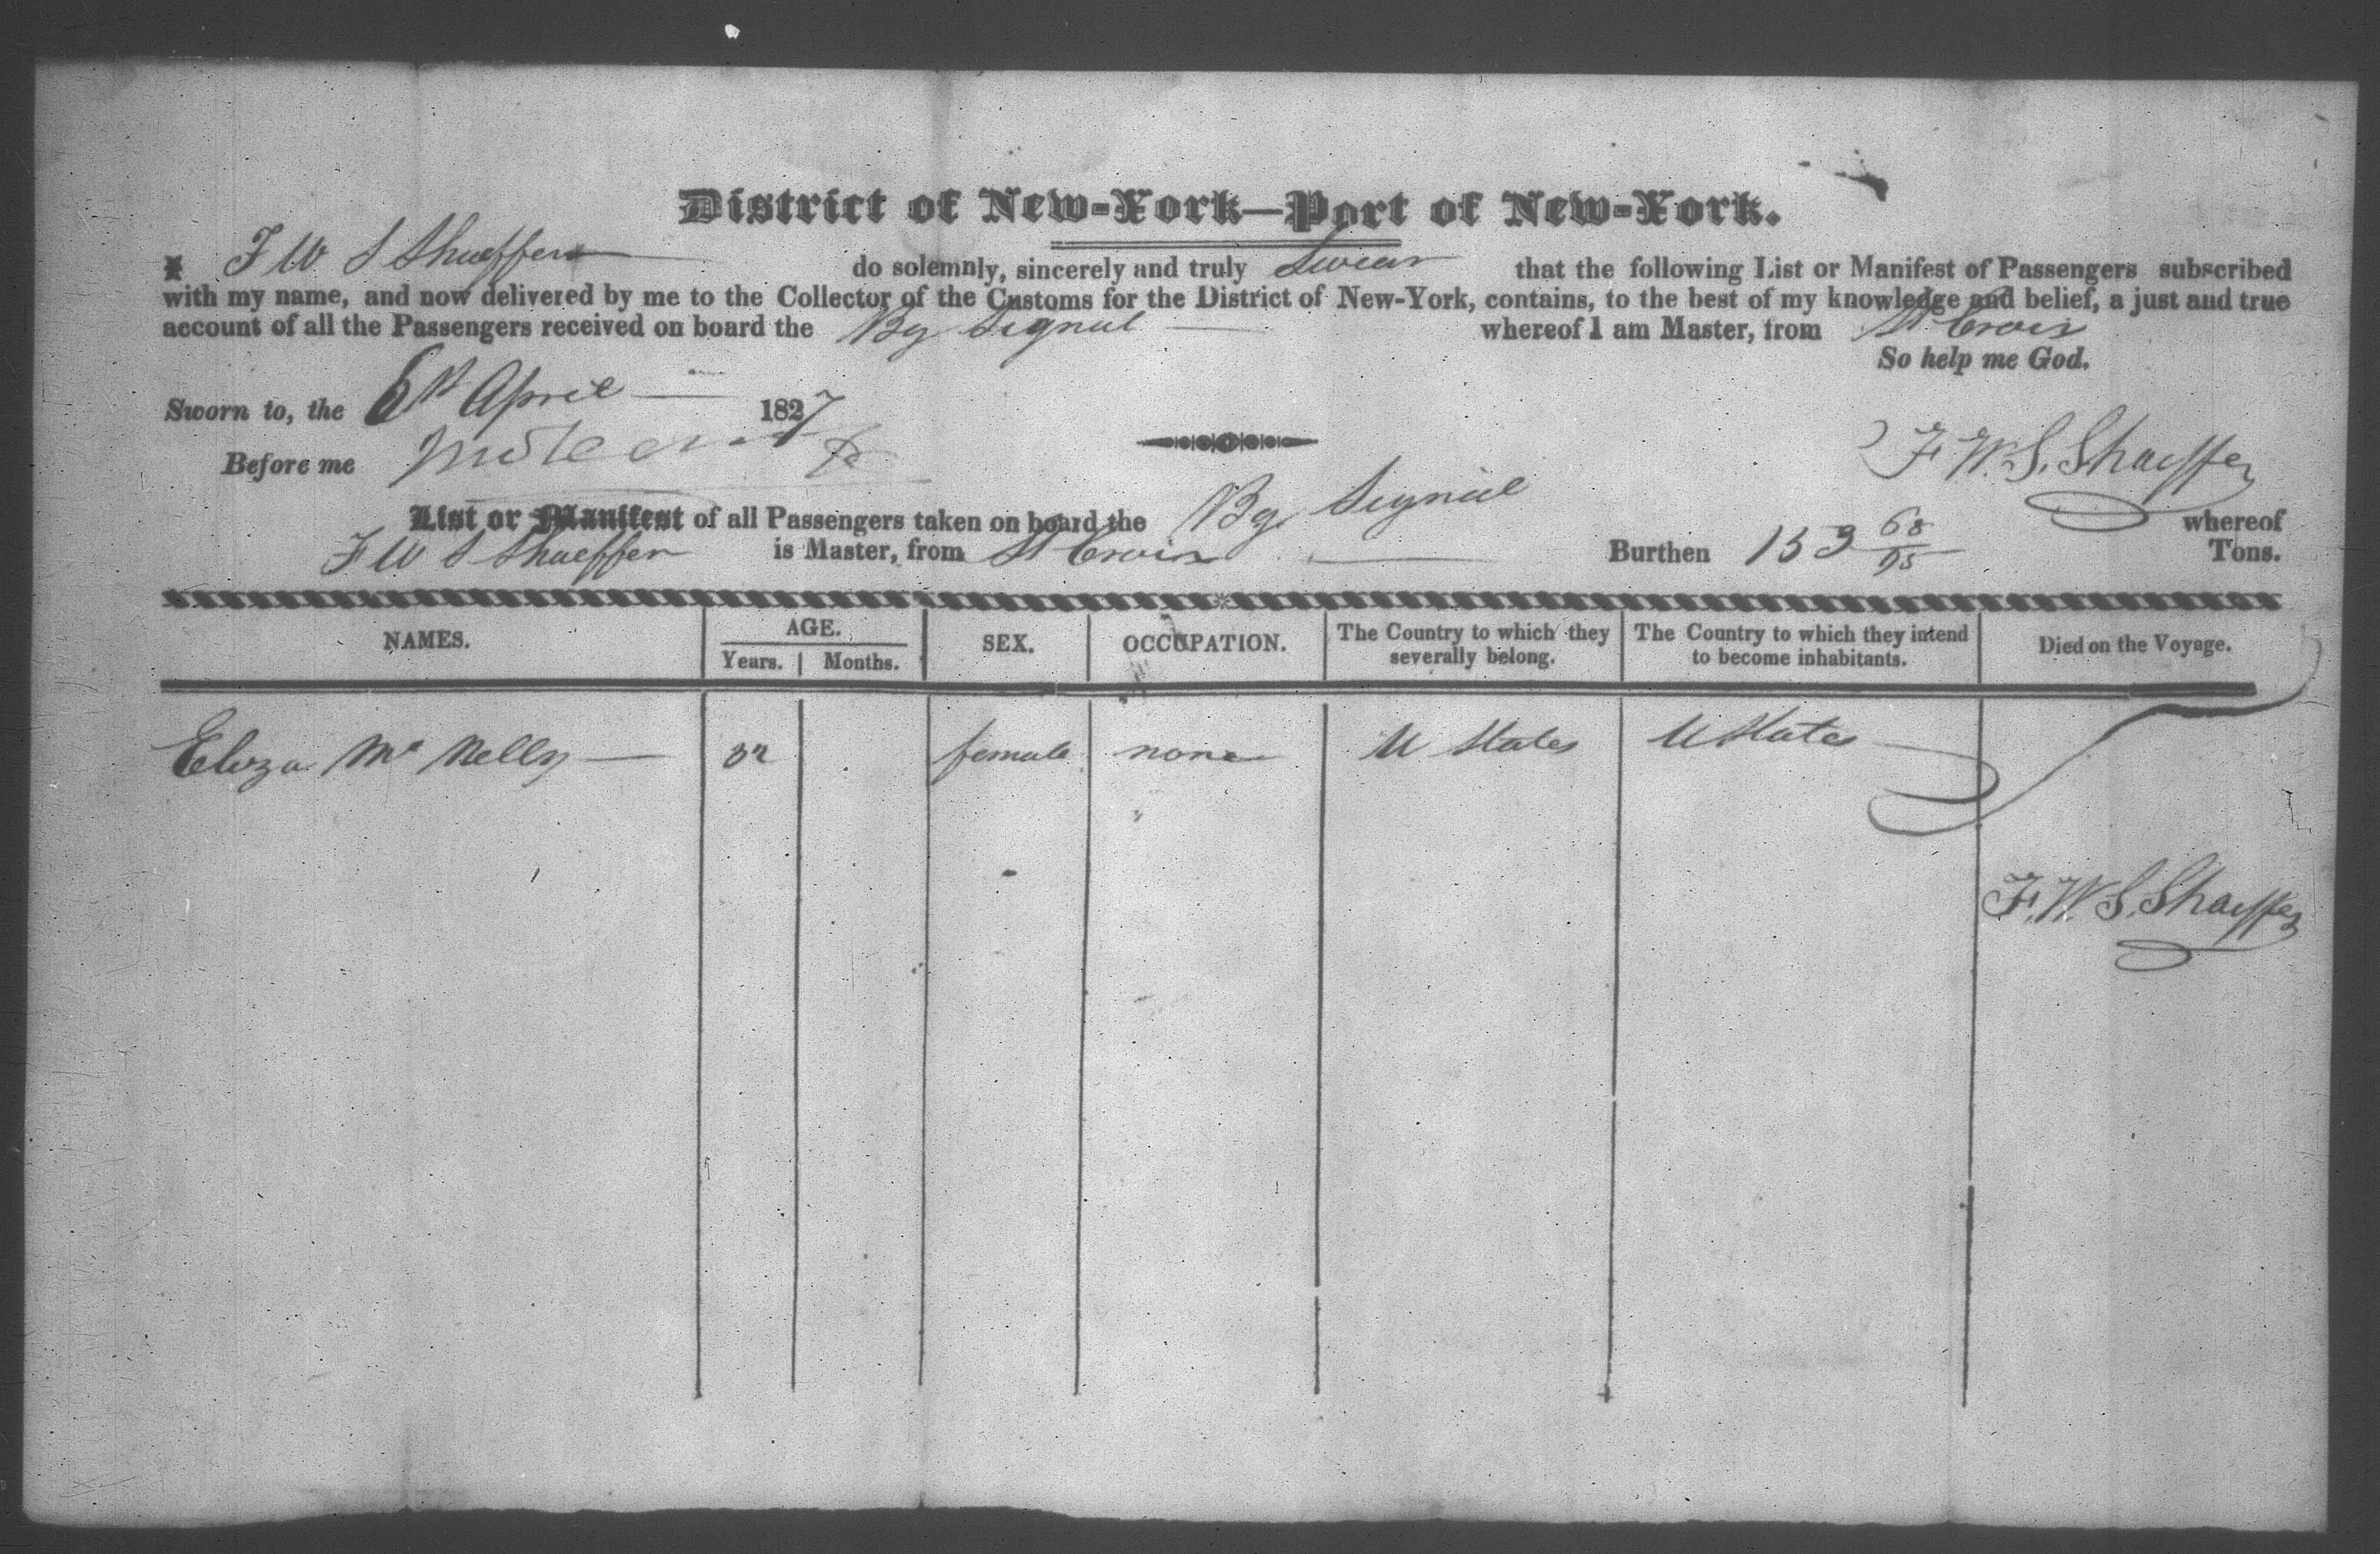 District of New-York—Port of New-York.
I F W S Shaeffer do solemnly, sincerely and truly Swear that the following List or Manifest of Passengers subscribed
with my name, and now delivered by me to the Collector of the Customs for the District of New-York, contains, to the best of my knowledge and belief, a just and true
account of all the Passengers received on board the Bg Signal whereof I am Master, from St Croix
So help me God.
Sworn to, the 6th April 1827
Before me
F. W. S. Shaeffer
List or Manifest of all Passengers taken on board the Bg Signal whereof
F W S Shaeffer is Master, from St Croix Burthen 153 68/95 Tons.
NAMES. AGE. Years. Months. SEX. OCCUPATION. The Country to which they severally belong. The Country to which they intend to become inhabitants. Died on the Voyage.
Eliza Mc Nelly 32 female none U States U States
F. W. S. Shaeffer